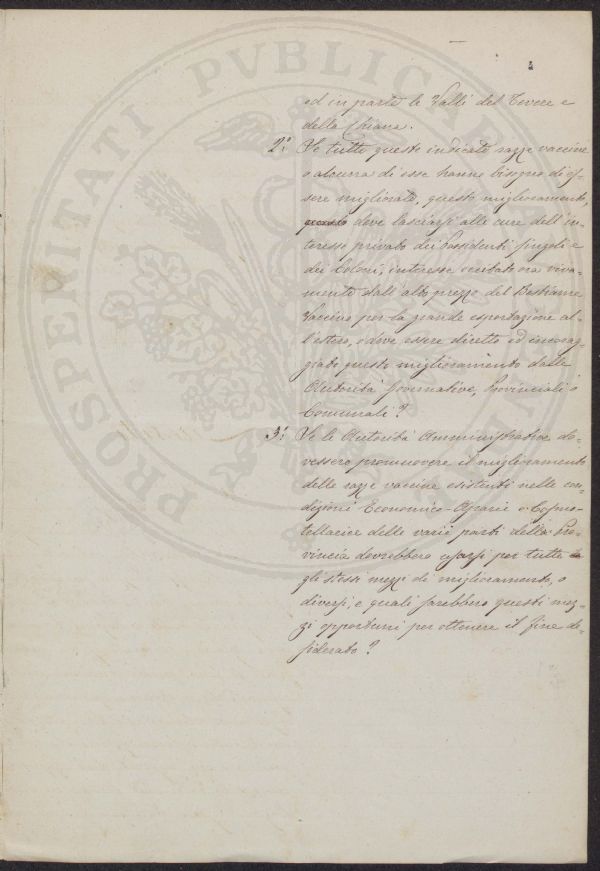 PROSPERITATI PVBLICAE
ed in parte le Valli del Tevere e
della Chiana.
2.° Se tutte queste indicate razze vaccine
o alcuna di esse hanno bisogno di es-
sere migliorate, questo miglioramento,
deve lasciarsi alle cure dell'in-
teresse privato dei Possidenti singoli e
dei Coloni, interesse eccitato ora viva-
mente dall'alto prezzo del Bestiame
Vaccino per la grande esportazione al-
l'estero, o deve essere diretto ed incorag-
giato questo miglioramento dalle
Autorità Governative, Provinciali o
Comunali?
3.° Se le Autorità Amministrative do-
vessero promuovere il miglioramento
delle razze vaccine esistenti nelle con-
dizioni Economico-Agrarie o
delle varie parti della Pro-
vincia dovrebbero usarsi per tutte
gli stessi mezzi di miglioramento, o
diversi, e quali sarebbero questi mez-
zi opportuni per ottenere il fine de-
siderato?